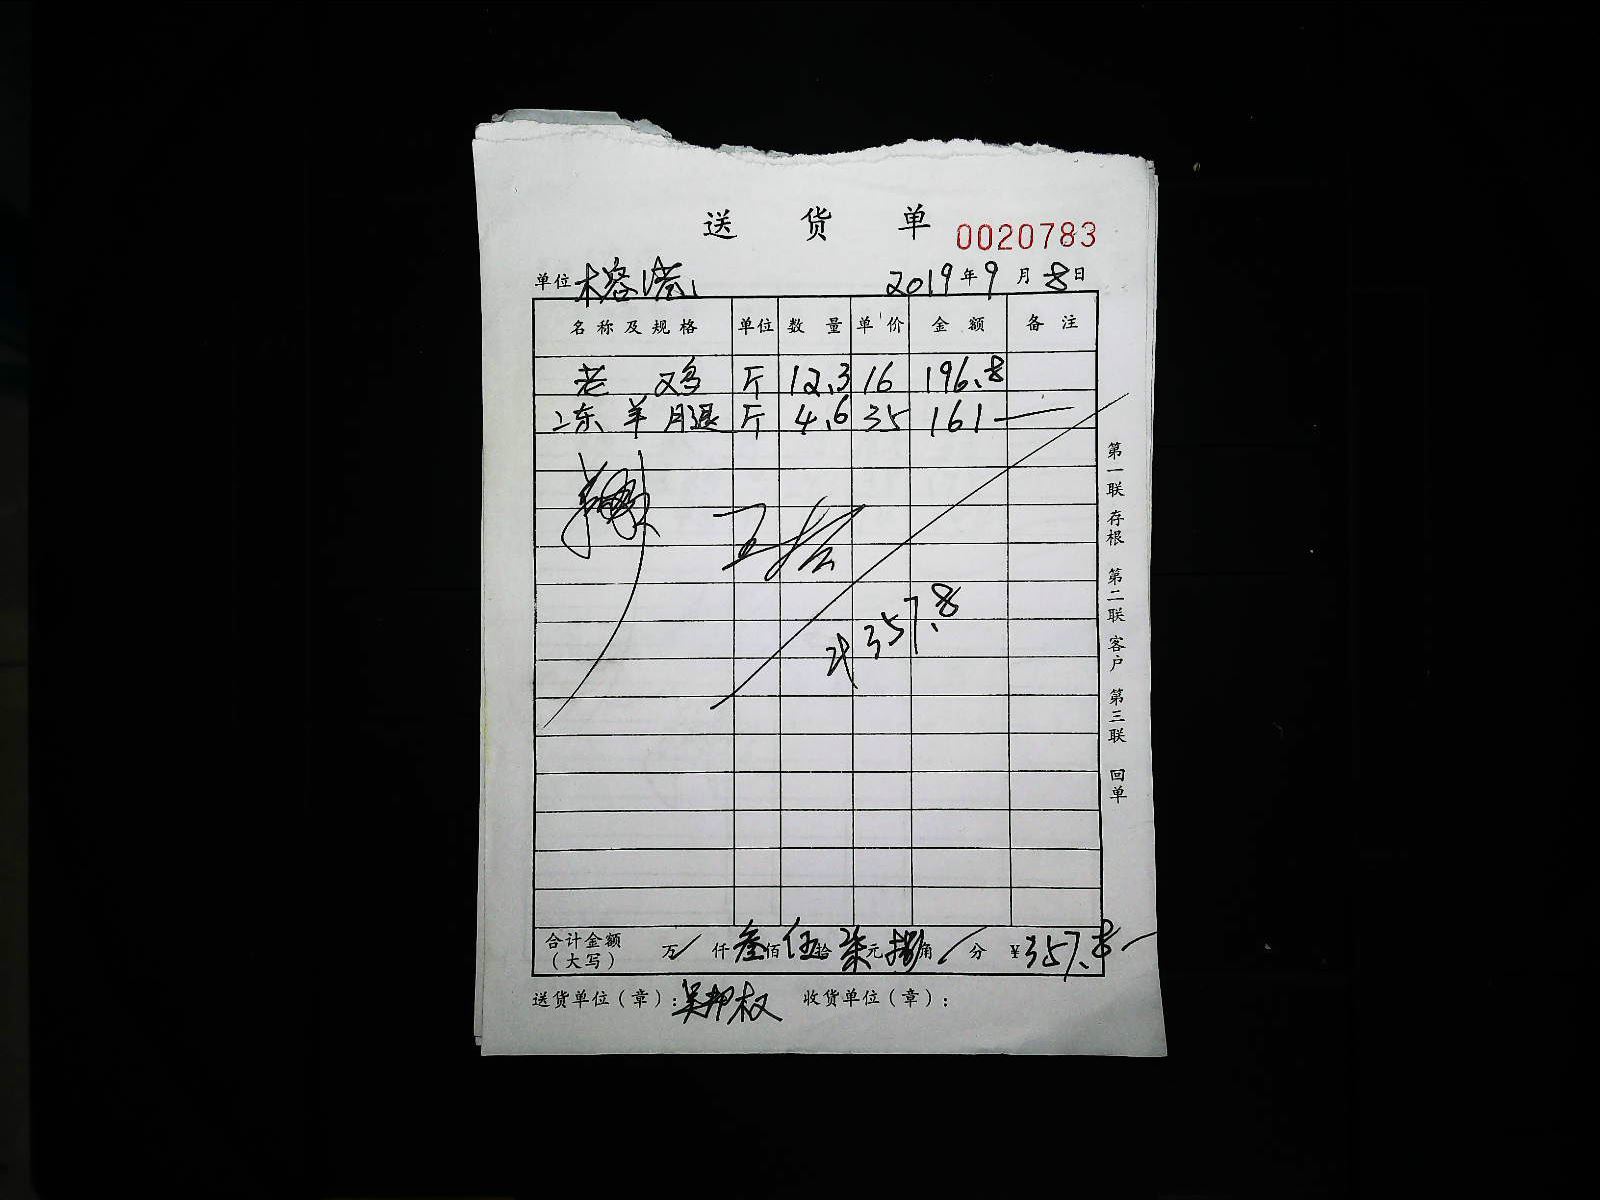 送 货 单 0020783
单位 榕港 2019 年 9 月 8 日
名称及规格 单位 数量 单价 金额 备注
老鸡 斤 12.3 16 196.8
冻羊腿 斤 4.6 35 161
计 357.8
合计金额（大写） 万 仟 叁 佰 伍 拾 柒 元 捌 角 分 ¥357.8
送货单位（章）：吴邦权 收货单位（章）：
第一联 存根 第二联 客户 第三联 回单